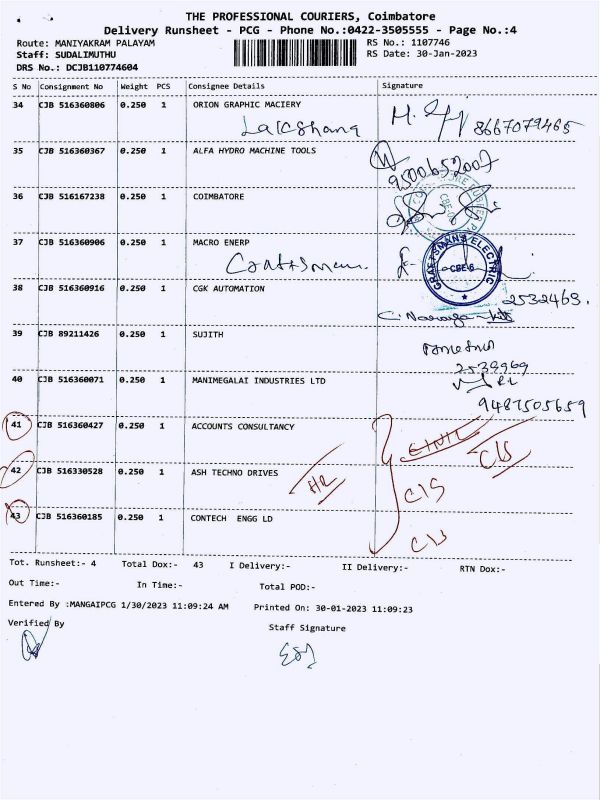 THE PROFESSIONAL COURIERS, Coimbatore
Delivery Runsheet - PCG - Phone No.:0422-3505555 - Page No.:4
Route: MANIYAKRAM PALAYAM RS No.: 1107746
Staff: SUDALIMUTHU RS Date: 30-Jan-2023
DRS No.: DCJB110774604
S No Consignment No Weight PCS Consignee Details Signature
34 CJB 516360806 0.250 1 ORION GRAPHIC MACIERY
8667079465
35 CJB 516360367 0.250 1 ALFA HYDRO MACHINE TOOLS
9500652007
36 CJB 516167238 0.250 1 COIMBATORE
37 CJB 516360906 0.250 1 MACRO ENERP
CBE-6
38 CJB 516360916 0.250 1 CGK AUTOMATION
2532469.
39 CJB 89211426 0.250 1 SUJITH
40 CJB 516360071 0.250 1 MANIMEGALAI INDUSTRIES LTD
9487505659
41 CJB 516360427 0.250 1 ACCOUNTS CONSULTANCY
42 CJB 516330528 0.250 1 ASH TECHNO DRIVES
43 CJB 516360185 0.250 1 CONTECH ENGG LD
Tot. Runsheet:- 4 Total Dox:- 43 I Delivery:- II Delivery:- RTN Dox:-
Out Time:- In Time:- Total POD:-
Entered By :MANGAIPCG 1/30/2023 11:09:24 AM Printed On: 30-01-2023 11:09:23
Verified By Staff Signature